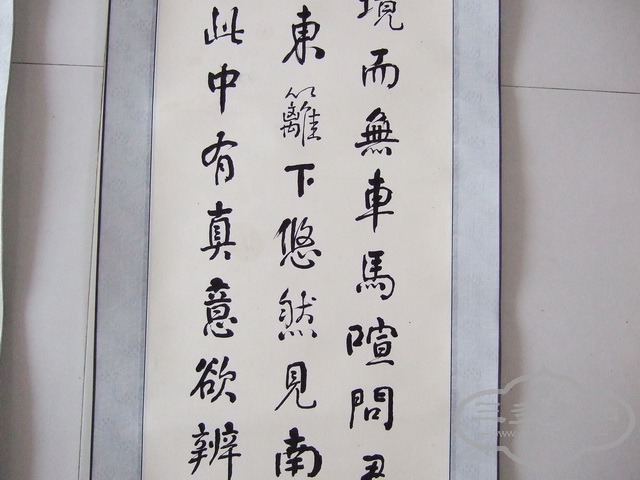 境而無車馬喧問君
東籬下悠然見南
此中有真意欲辨
www.